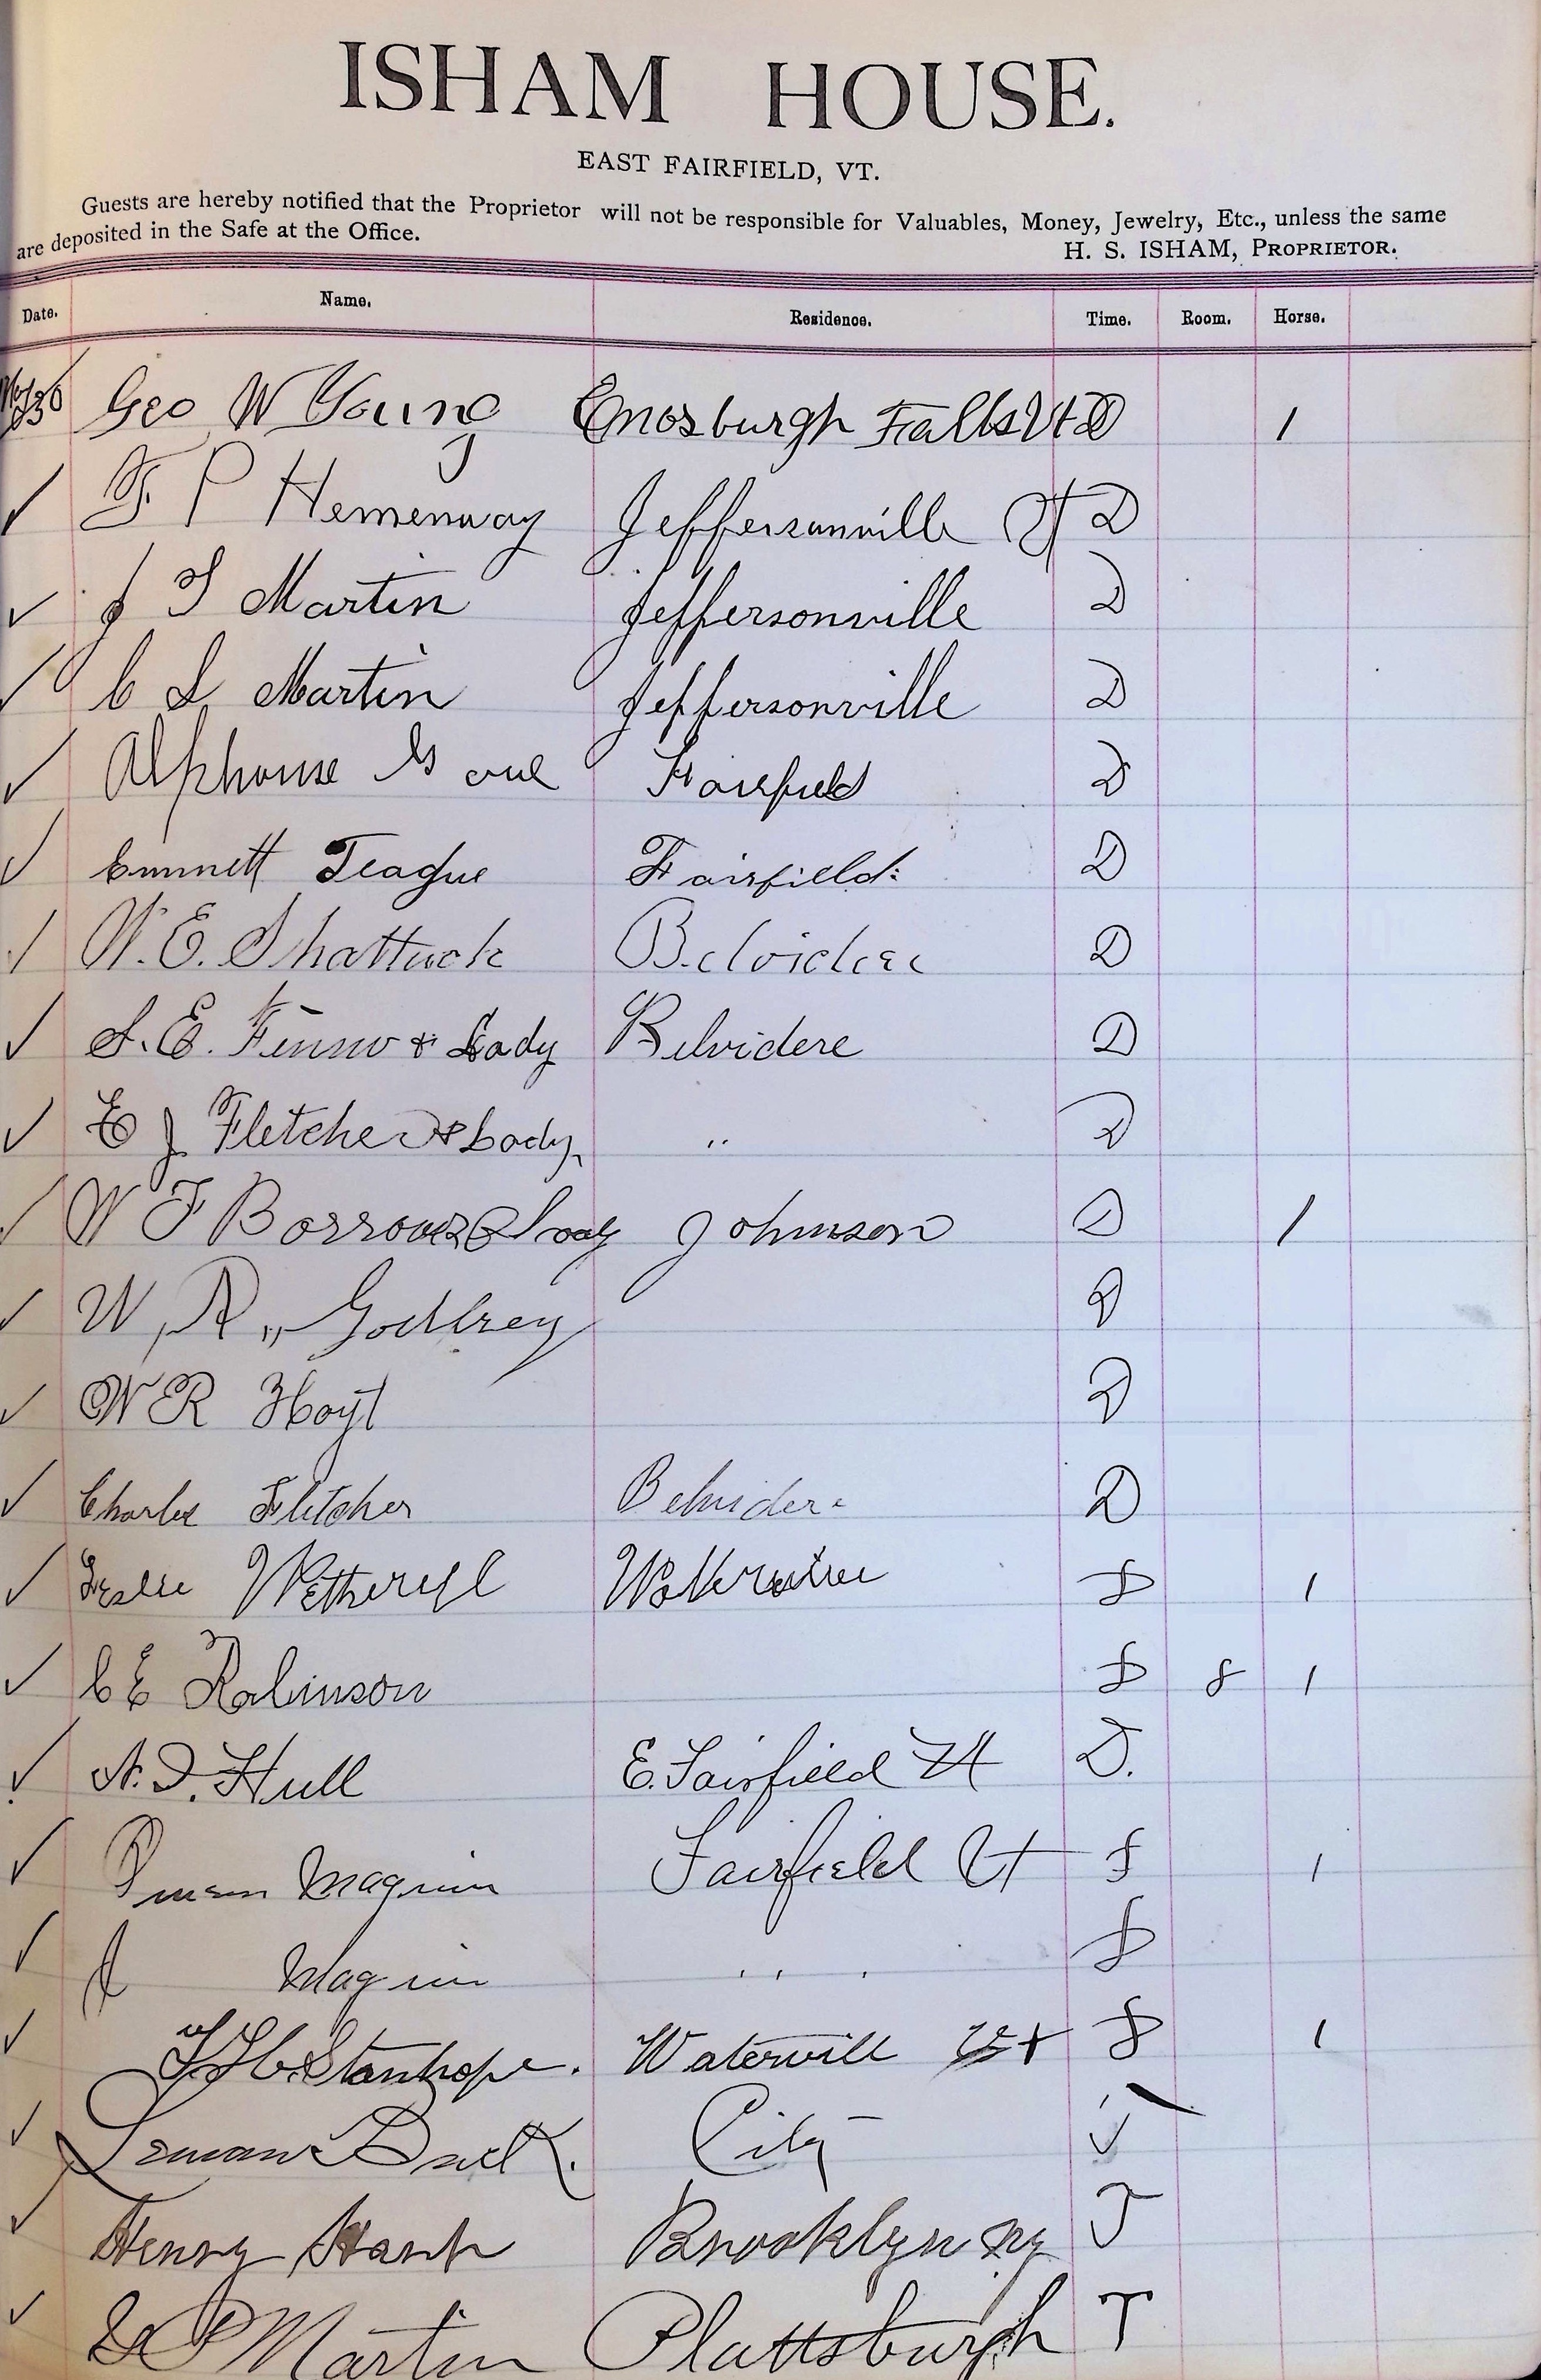 ISHAM HOUSE.
EAST FAIRFIELD, VT.
Guests are hereby notified that the Proprietor will not be responsible for Valuables, Money, Jewelry, Etc., unless the same
are deposited in the Safe at the Office.
H. S. ISHAM, PROPRIETOR.
Date. Name. Residence. Time. Room. Horse.
30 Geo W Young Enosburgh Falls Vt D 1
✓ F P Hemenway Jeffersonville Vt D
✓ J T Martin Jeffersonville D
✓ C L Martin Jeffersonville D
✓ Alphonse Fairfield D
✓ Emmett Teague Fairfield D
✓ W. E. Shattuck Belvidere D
✓ S. E. & Lady Belvidere D
✓ E J Fletcher & Lady " D
✓ W F Borrows & Lady Johnson D 1
✓ W. R. Godfrey D
✓ W R Hoyt D
✓ Charles Fletcher Belvidere D
✓ Leslie Wetheryl D 1
✓ C E Robinson D 8 1
✓ A. D. Hull E. Fairfield Vt D.
✓ Magnin Fairfield Vt 1
✓ Magnin " " D
✓ Stanhope. Waterville Vt 1
✓ City
✓ Henry Brooklyn NY T
✓ P Martin Plattsburgh T